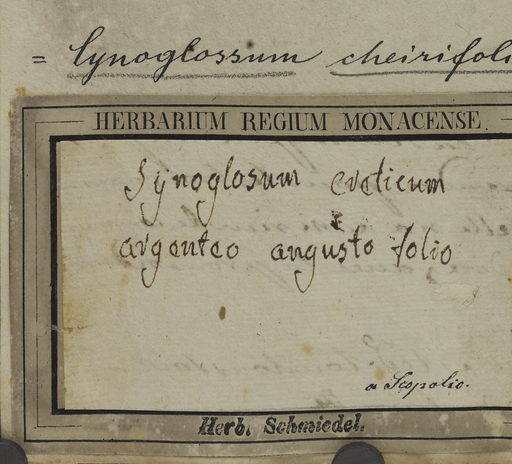 = Cynoglossum cheirifoli
HERBARIUM REGIUM MONACENSE.
Synoglosum creticum
argenteo angusto folio
a Scopolio.
Herb. Schmiedel.